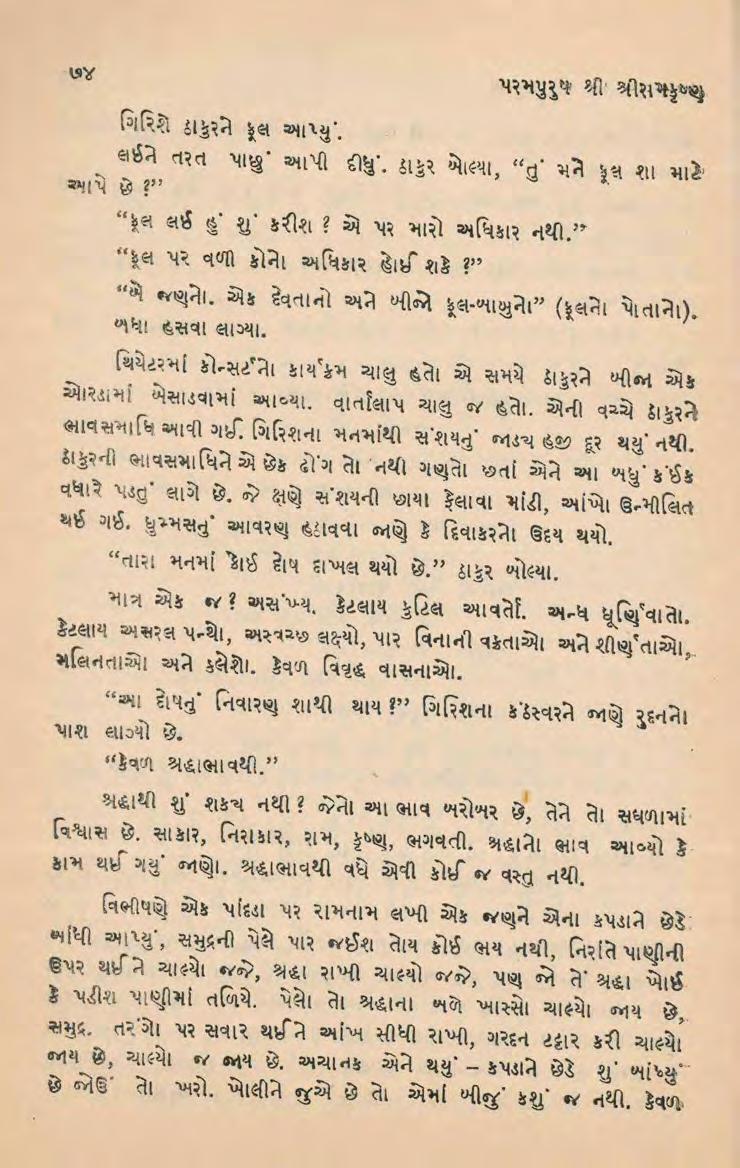 ૭૪
પરમપુરુષ શ્રી શ્રીરામકૃષ્ણ
ગિરિશે ઠાકુરને ફૂલ આપ્યું.
લઈને તરત પાછું આપી દીધું. ઠાકુર બોલ્યા, “તું મને ફૂલ શા માટે
આપે છે ?”
“ફૂલ લઈ હું શું કરીશ ? એ પર મારો અધિકાર નથી.”
“ફૂલ પર વળી કોનો અધિકાર હોઈ શકે ?”
“બે જણનો. એક દેવતાનો અને બીજો ફૂલ-બાબુનો” (ફૂલનો પોતાનો).
બધા હસવા લાગ્યા.
થિયેટરમાં કોન્સર્ટનો કાર્યક્રમ ચાલુ હતો એ સમયે ઠાકુરને બીજા એક
ઓરડામાં બેસાડવામાં આવ્યા. વાર્તાલાપ ચાલુ જ હતો. એની વચ્ચે ઠાકુરને
ભાવસમાધિ આવી ગઈ. ગિરિશના મનમાંથી સંશયનું જાડ્ય હજી દૂર થયું નથી.
ઠાકુરની ભાવસમાધિને એ છેક ઢોંગ તો નથી ગણતો છતાં એને આ બધું કંઈક
વધારે પડતું લાગે છે. જે ક્ષણે સંશયની છાયા ફેલાવા માંડી, આંખો ઉન્મીલિત
થઈ ગઈ. ધુમ્મસનું આવરણ હટાવવા જાણે કે દિવાકરનો ઉદય થયો.
“તારા મનમાં કોઈ દોષ દાખલ થયો છે.” ઠાકુર બોલ્યા.
માત્ર એક જ ? અસંખ્ય. કેટલાય કુટિલ આવર્તો. અન્ધ ઘૂર્ણિવાતો.
કેટલાય અસરલ પન્થો, અસ્વચ્છ લક્ષ્યો, પાર વિનાની વક્રતાઓ અને શીર્ણતાઓ,
મલિનતાઓ અને કલેશો. કેવળ વિવૃદ્ધ વાસનાઓ.
“આ દોષનું નિવારણ શાથી થાય ?” ગિરિશના કંઠસ્વરને જાણે રુદનનો
પાશ લાગ્યો છે.
“કેવળ શ્રદ્ધાભાવથી.”
શ્રદ્ધાથી શું શકય નથી ? જેનો આ ભાવ બરોબર છે, તેને તો સઘળામાં
વિશ્વાસ છે. સાકાર, નિરાકાર, રામ, કૃષ્ણ, ભગવતી. શ્રદ્ધાનો ભાવ આવ્યો કે
કામ થઈ ગયું જાણો. શ્રદ્ધાભાવથી વધે એવી કોઈ જ વસ્તુ નથી.
વિભીષણે એક પાંદડા પર રામનામ લખી એક જણને એના કપડાને છેડે
બાંધી આપ્યું, સમુદ્રની પેલે પાર જઈશ તોય કોઈ ભય નથી, નિરાંતે પાણીની
ઉપર થઈ ને ચાલ્યો જજે, શ્રદ્ધા રાખી ચાલ્યો જજે, પણ જો તેં શ્રદ્ધા ખોઈ
કે પડીશ પાણીમાં તળિયે. પેલો તો શ્રદ્ધાના બળે ખાસ્સો ચાલ્યો જાય છે,
સમુદ્ર. તરંગો પર સવાર થઈ ને આંખ સીધી રાખી, ગરદન ટટ્ટાર કરી ચાલ્યો
જાય છે, ચાલ્યો જ જાય છે. અચાનક એને થયું – કપડાને છેડે શું બાંધ્યું
છે જોઉં તો ખરો. ખોલીને જુએ છે તો એમાં બીજું કશું જ નથી. કેવળ